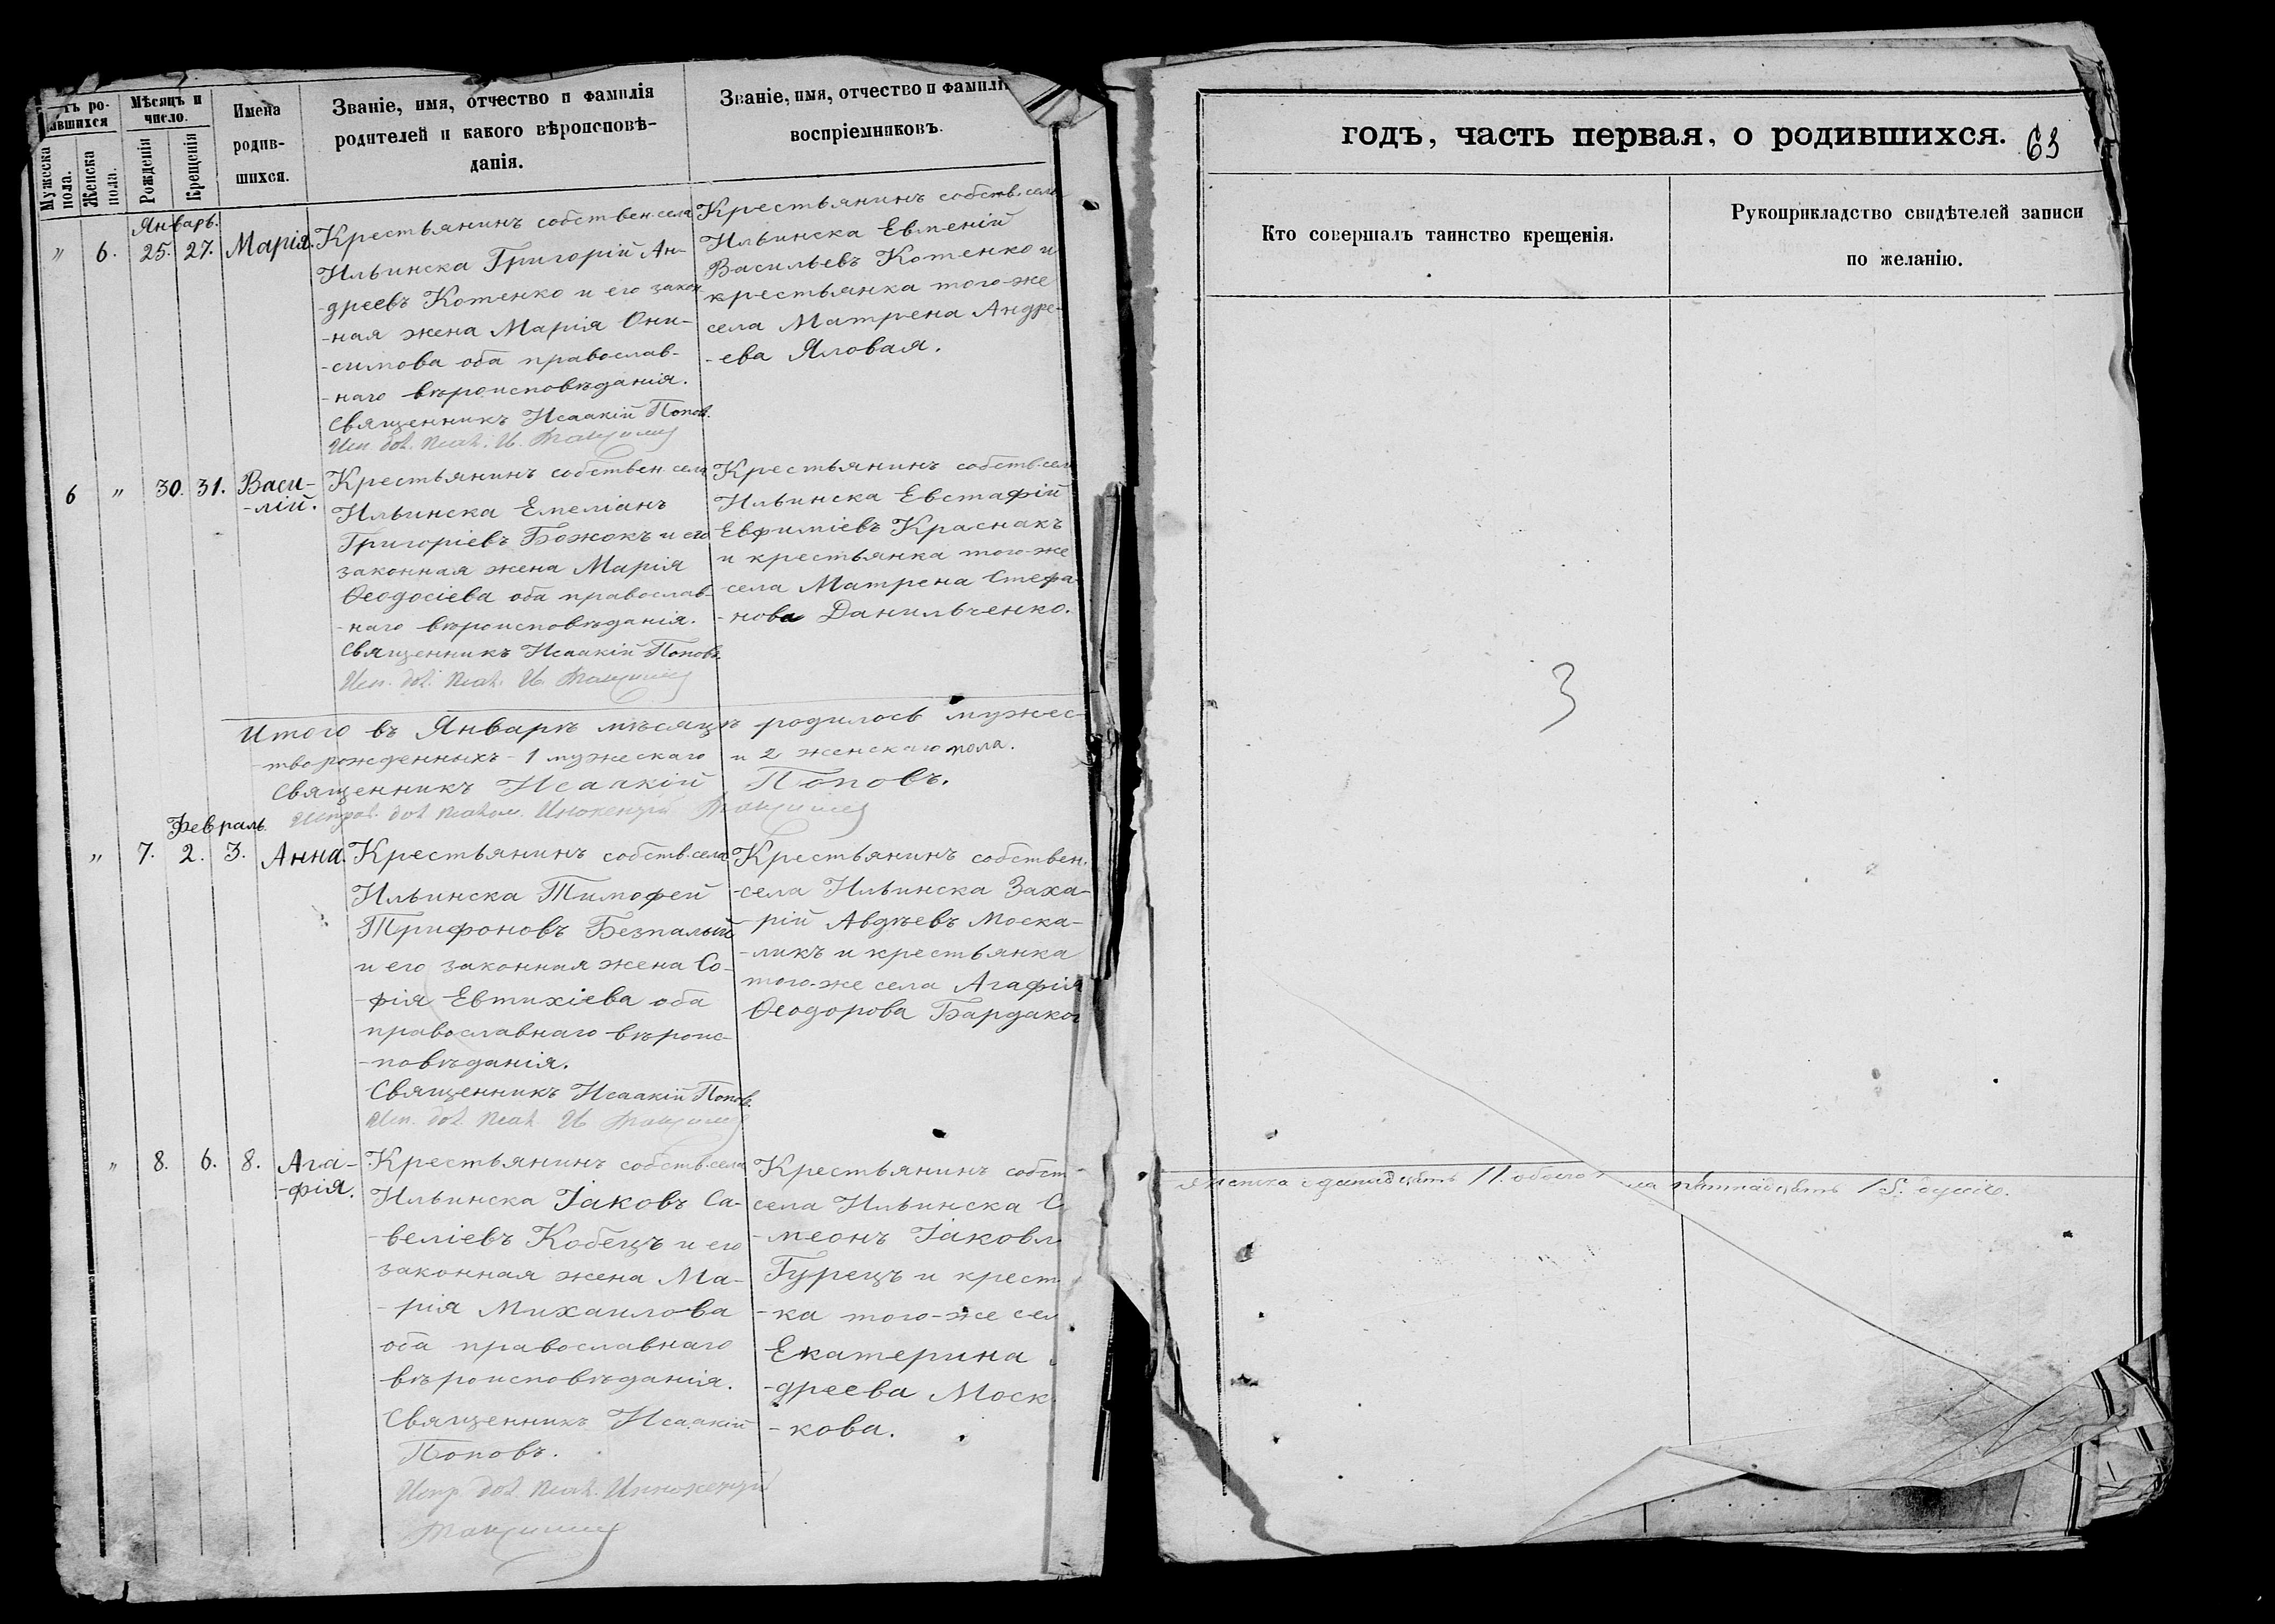 Мѣсяцъ и
число.
Мужеска
пола.
Женска
пола.
Рожденія
Крещенія
Имена
родив-
шихся.
Званіе, имя, отчество и фамилія
родителей и какого вѣроисповѣ-
данія.
Званіе, имя, отчество и фамилі
воспріемниковъ.
Январь.
" 6. 25. 27. Марія.
Крестьянинъ собствен. села
Ильинска Григорій Ан-
-дреевъ Котенко и его закон-
-ная жена Марія Они-
-симова оба православ-
-наго вѣроисповѣданія.
Священникъ Исаакій Попов.
Крестьянинъ собств. села
Ильинска Евменій
Васильевъ Котенко и
крестьянка того-же
села Матрена Андре-
-ева Яловая.
6 " 30. 31. Васи-
-лій.
Крестьянинъ собствен. села
Ильинска Емеліанъ
Григоріевъ Божокъ и его
законная жена Марія
Ѳеодосіева оба православ-
-наго вѣроисповѣданія.
Священникъ Исаакій Поповъ.
Крестьянинъ собств. сел
Ильинска Евстафій
Евфиміевъ Краснакъ
и крестьянка того-же
села Матрена Стефа-
-нова Данильченко.
Итого въ Январѣ мѣсяцѣ родилось мужес-
-тво рожденныхъ - 1 мужескаго и 2 женскаго пола.
Священникъ Исаакій Поповъ.
Февраль.
" 7. 2. 3. Анна.
Крестьянинъ собств. села
Ильинска Тимофей
Трифоновъ Безпалый
и его законная жена Со-
-фія Евтихіева оба
православнаго вѣроис-
-повѣданія.
Священникъ Исаакій Попов.
Крестьянинъ собствен.
-села Ильинска Заха-
-рій Авдѣевъ Моска-
-ликъ и крестьянка
того-же села Агафія
Ѳеодорова Бардаков
" 8. 6. 8. Ага-
-фія.
Крестьянинъ собств. села
Ильинска Іаковъ Са-
-веліевъ Кобецъ и его
законная жена Ма-
-рія Михаилова
оба православнаго
вѣроисповѣданія.
Священникъ Исаакій
Поповъ.
Крестьянинъ собст
села Ильинска С
-меонъ Іаковл
Гурецъ и крест
-ка того-же сел
Екатерина
-дреева Моск
-кова.
годъ, часть первая, о родившихся. 63
Кто совершалъ таинство крещенія.
Рукоприкладство свидѣтелей записи
по желанію.
3